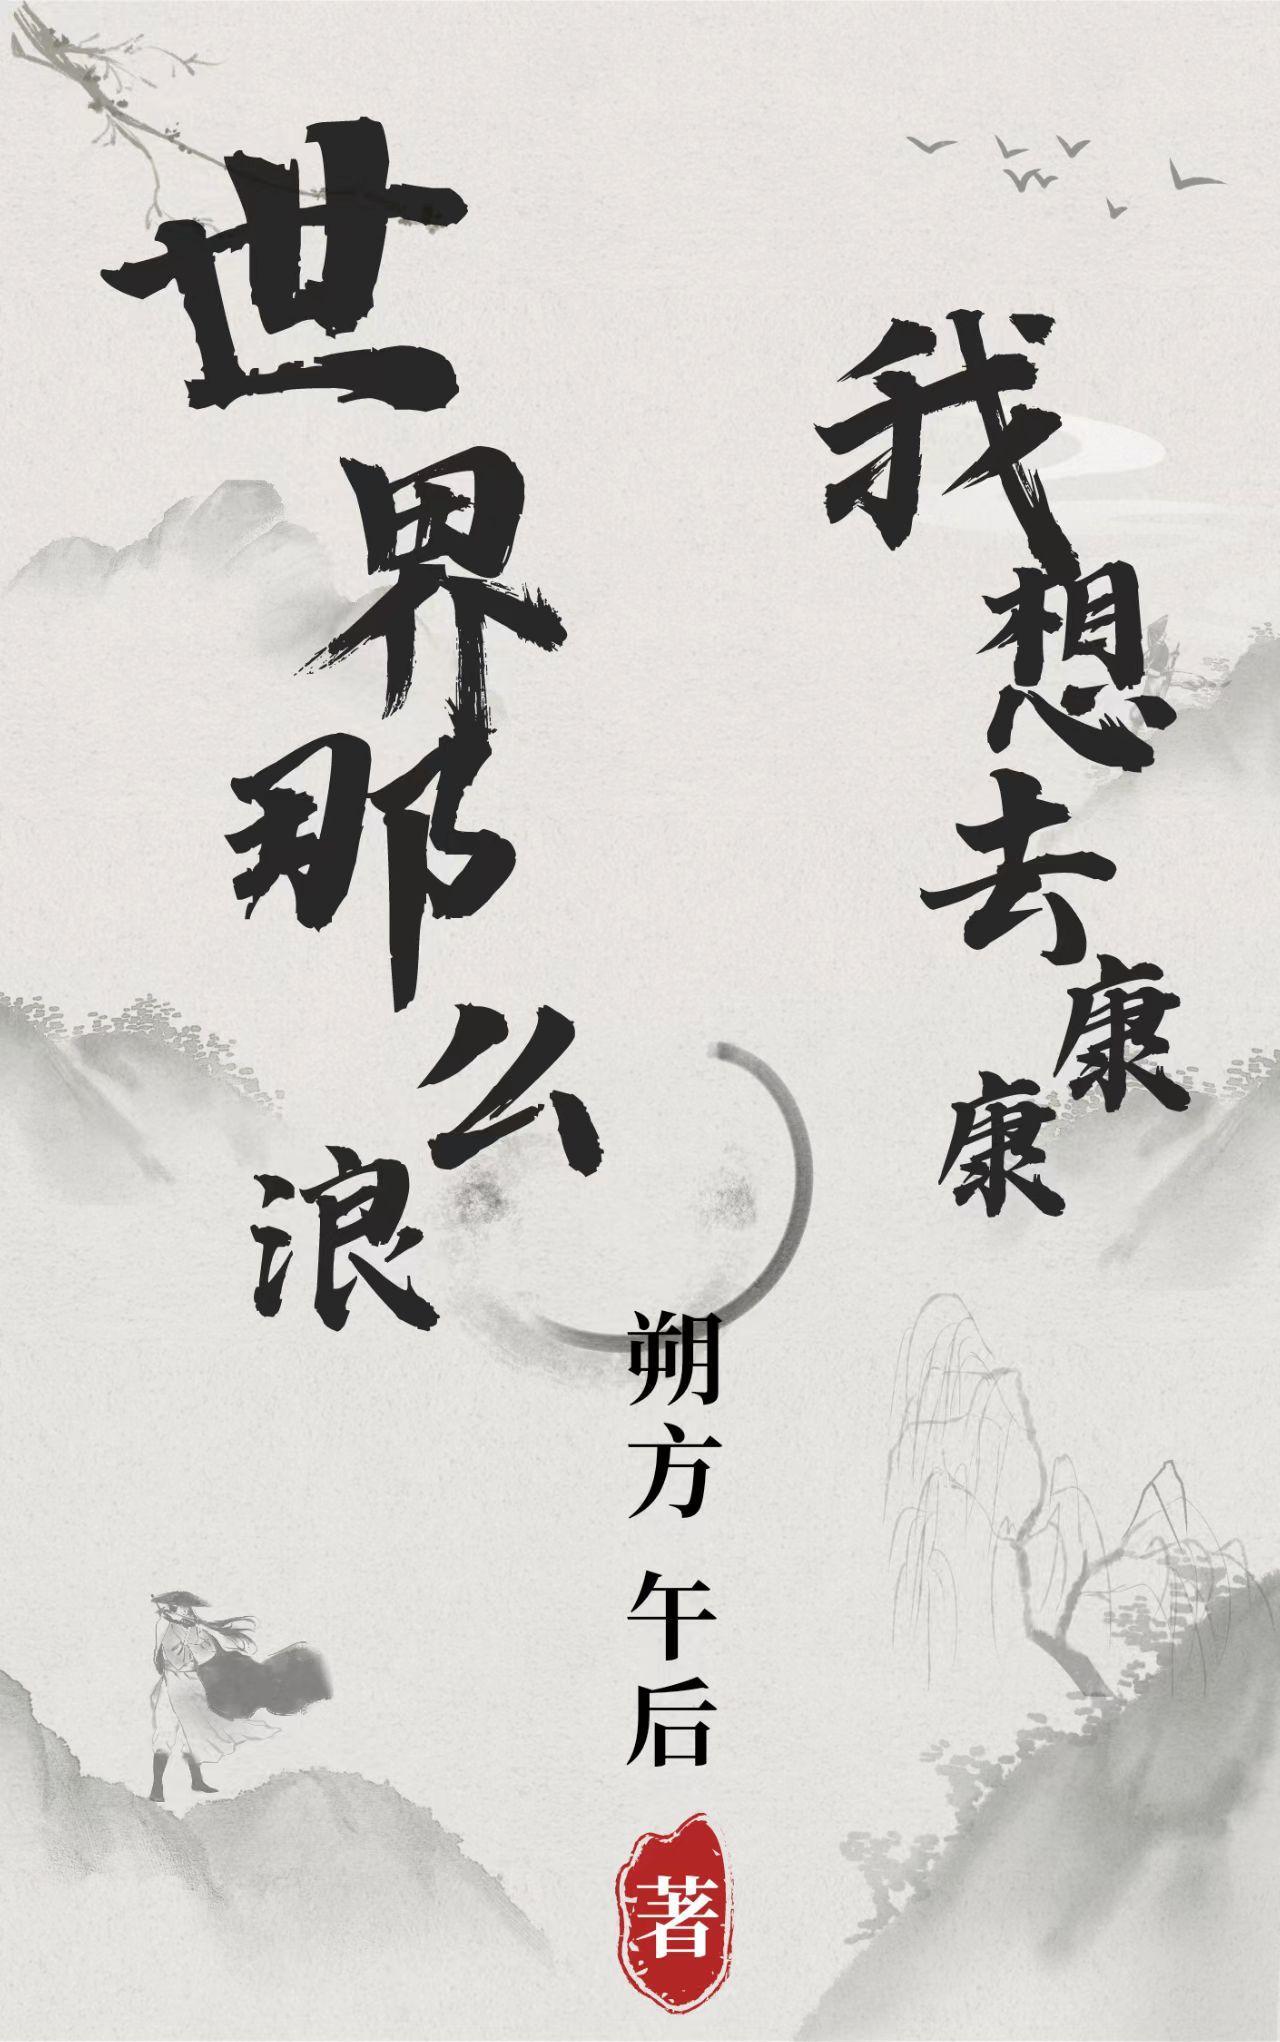 世界那么浪
我想去康康
朔方 午后
著